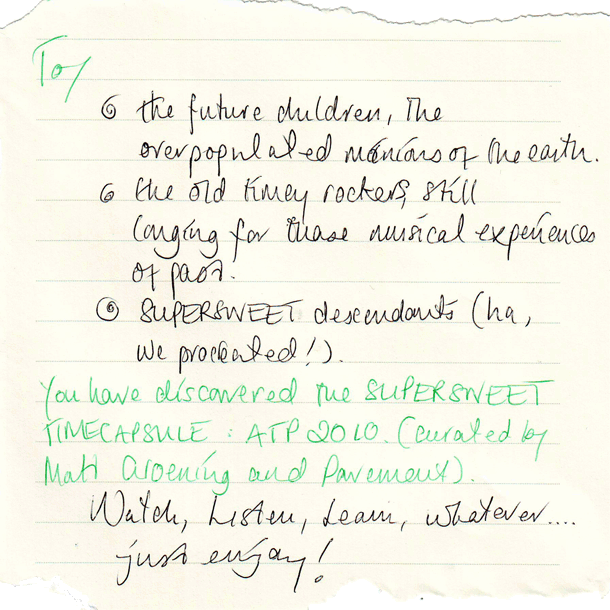 To/
the future children, The
overpopulated minions of the earth.
the old timey rockers, still
longing for those musical experiences
of past.
SUPERSWEET descendants (ha,
we procreated!).
You have discovered the SUPERSWEET
TIMECAPSULE : ATP 2010. (curated by
Matt Groening and Pavement).
Watch, Listen, Learn, whatever....
just enjoy!